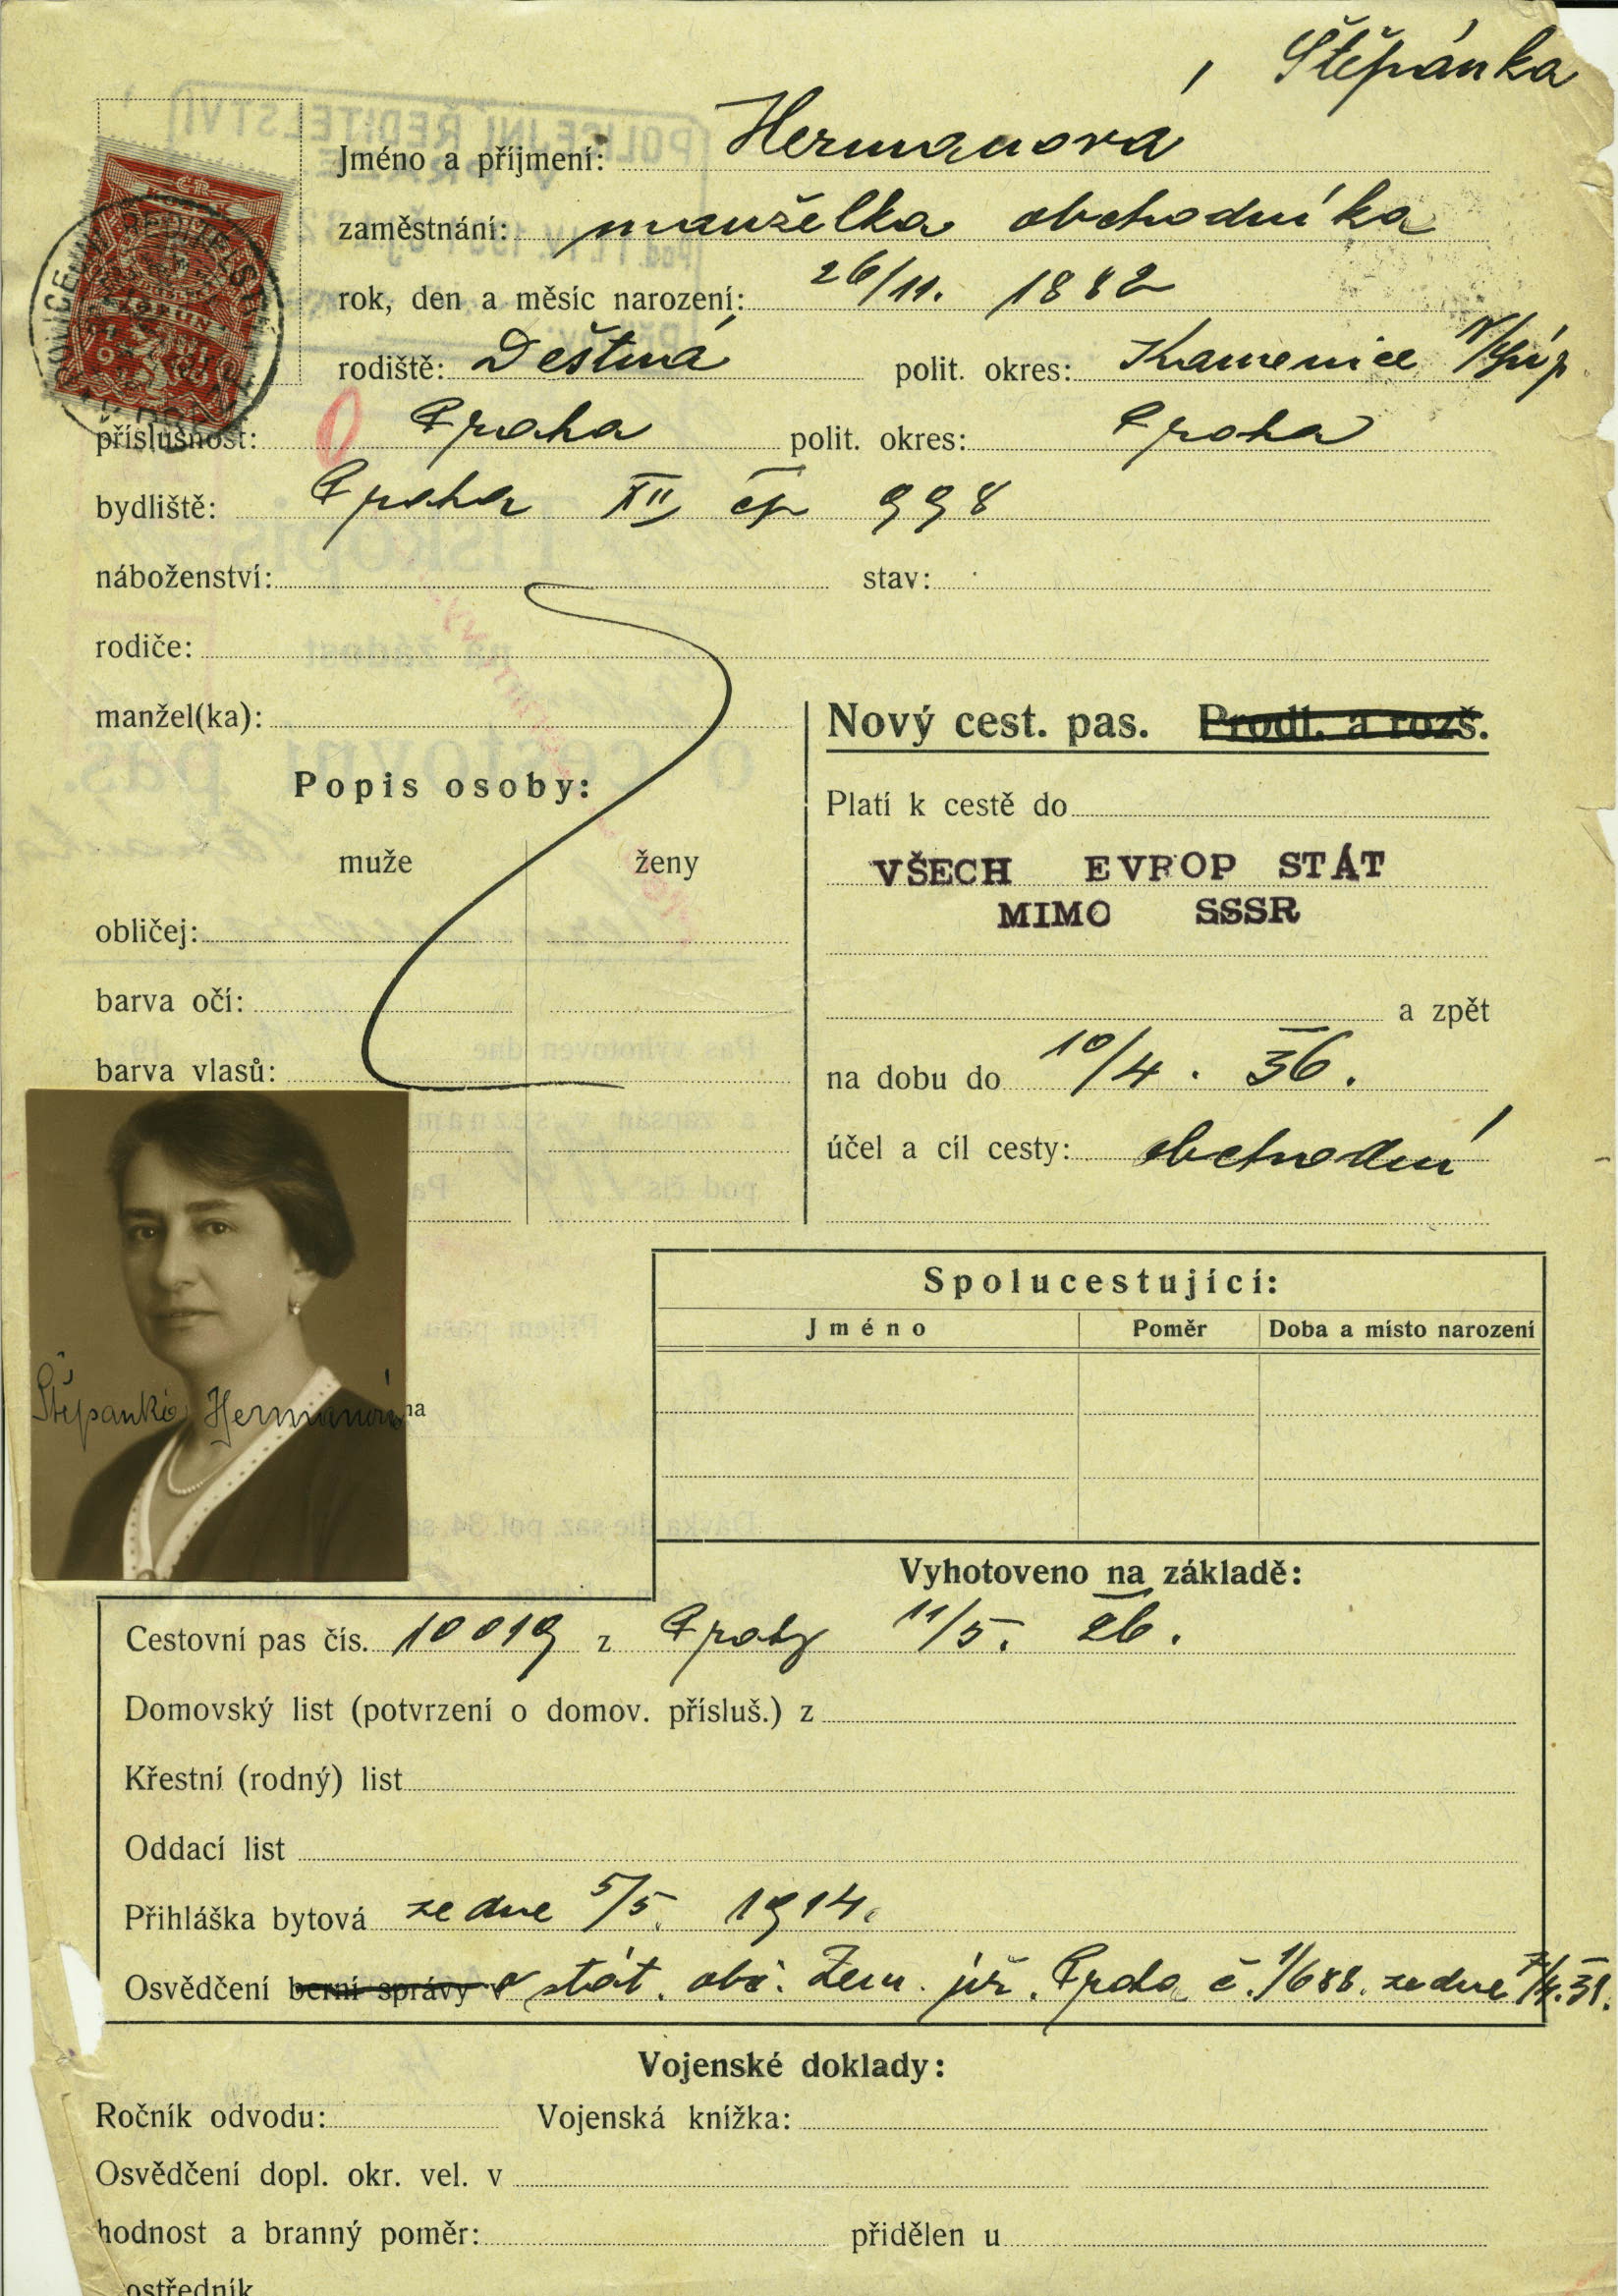 , Štěpánka
Jméno a příjmení: Hermanová
zaměstnání: manželka obchodníka
rok, den a měsíc narození: 26/11. 1882
rodiště: Deštná polit. okres: Kamenice
příslušnost: Praha polit. okres: Praha
bydliště: Praha XII čp 998
náboženství: stav:
rodiče:
manžel(ka):
Nový cest. pas. Prodl. a rozš.
Popis osoby:
Platí k cestě do
muže ženy
VŠECH EVROP STÁT
MIMO SSSR
obličej:
barva očí:
a zpět
barva vlasů:
na dobu do 10/4. 36.
účel a cíl cesty: obchodní
Spolucestující:
Jméno Poměr Doba a místo narození
Štěpánka Hermanová
na
Vyhotoveno na základě:
Cestovní pas čís. 10019 z Prahy 11/5. 26.
Domovský list (potvrzení o domov. přísluš.) z
Křestní (rodný) list
Oddací list
Přihláška bytová ze dne 5/5. 1914.
Osvědčení berní správy v o stát. obč. Zem. úř. Praha č. 1/688. ze dne 7/4. 31.
Vojenské doklady:
Ročník odvodu: Vojenská knížka:
Osvědčení dopl. okr. vel. v
hodnost a branný poměr: přidělen u
ostředník